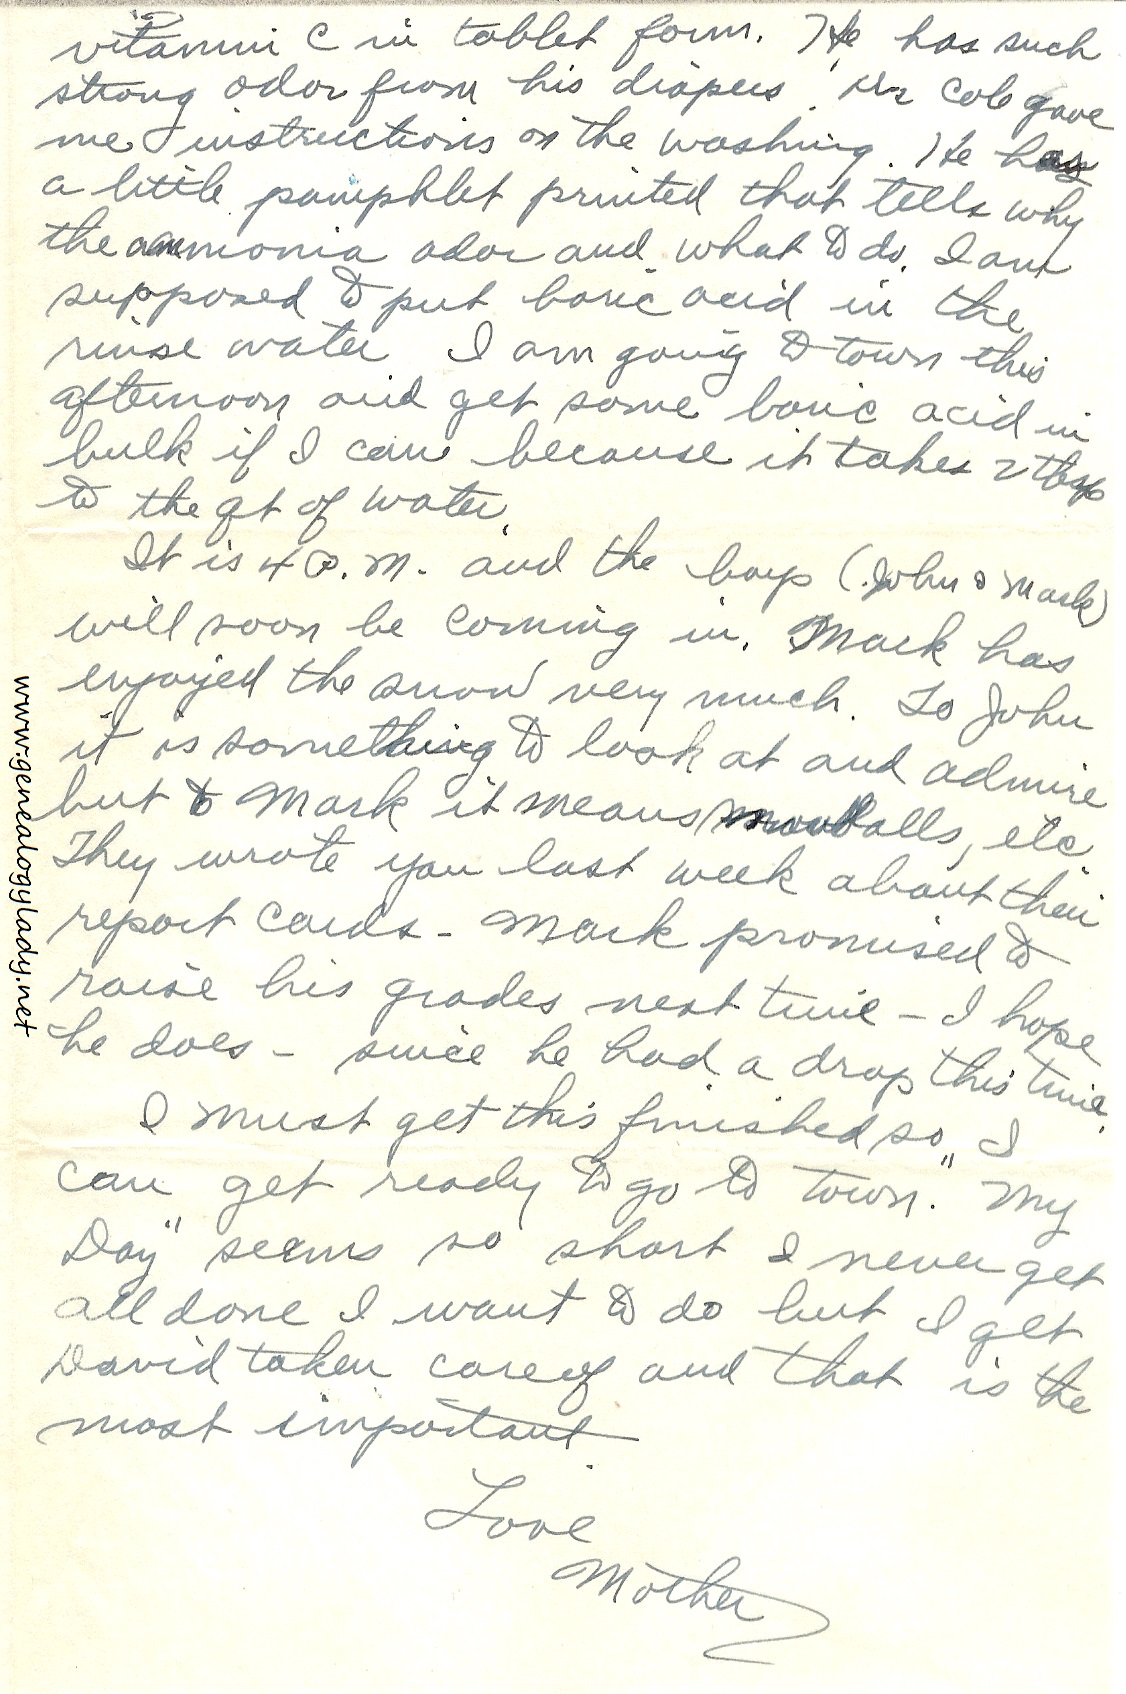 vitamin C in tablet form. He has such
strong odor from his diapers. Dr Cole gave
me instructions on the washing. He has
a little pamphlet printed that tells why
the ammonia odor and what to do. I am
supposed to put boric acid in the
rinse water I am going to town this
afternoon and get some boric acid in
bulk if I can because it takes 2 tbsp
to the qt of water.
It is 4 P.M. and the boys (John & Mark)
will soon be coming in. Mark has
enjoyed the snow very much. To John
it is something to look at and admire
but to Mark it means snowballs, etc.
They wrote you last week about their
report cards - Mark promised to
raise his grades next time - I hope
he does - since he had a drop this time.
I must get this finished so I
can get ready to go to town. "My
Day" seems so short I never get
all done I want to do but I get
David taken care of and that is the
most important
Love
Mother
www.genealogylady.net